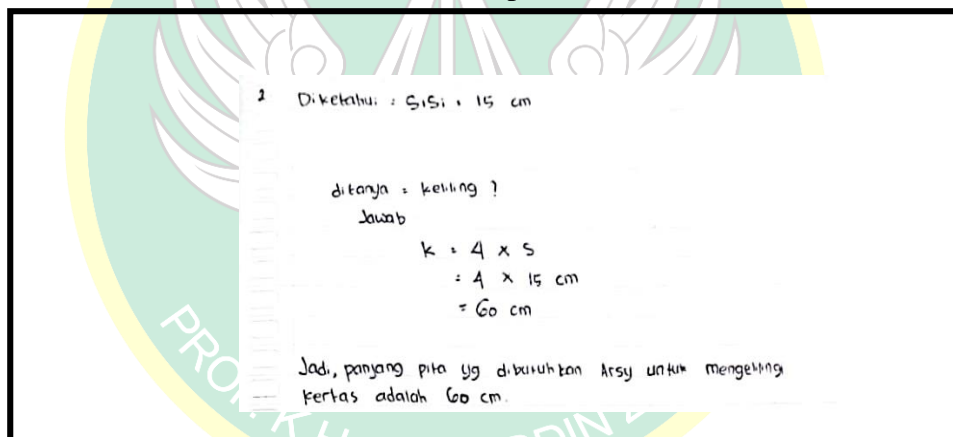 2 Diketahui : sisi = 15 cm
ditanya = keliling ?
Jawab
k = 4 x s
= 4 x 15 cm
= 60 cm
Jadi, panjang pita yg dibutuhkan Arsy untuk mengelilingi
kertas adalah 60 cm.
PROF. K.H.